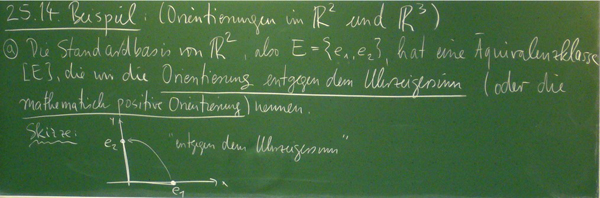 25.14. Beispiel: (Orientierungen in ℝ² und ℝ³)
(a) Die Standardbasis von ℝ², also E = {e₁, e₂}, hat eine Äquivalenzklasse
[E], die wir die Orientierung entgegen dem Uhrzeigersinn (oder die
mathematisch positive Orientierung) nennen.
Skizze:
y
e₂
"entgegen dem Uhrzeigersinn"
x
e₁